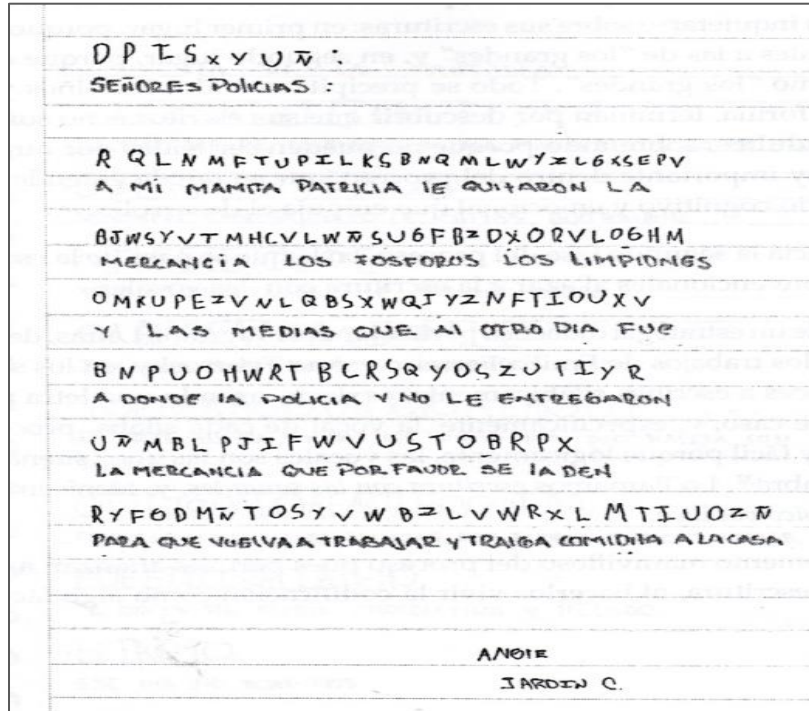 D P T S x Y U Ñ :
SEÑORES POLICIAS :
R Q L N M F T U P I L K S B N Q M L W Y Z L G X S E P V
A MI MAMITA PATRICIA lE QUITARON LA
B J W S Y V T M H C V L W Ñ S U G F B Z D X O R V L O G H M
MERCANCIA LOS FOSFOROS LOS LIMPIONES
O M K U P E Z V N L Q B S X W Q J Y Z N F T I O U X V
Y LAS MEDIAS QUE Al OTRO DIA FUE
B N P U O H W R T B C R S Q Y O S Z U T I Y R
A DONDE lA POLICIA Y NO LE ENTREGARON
U Ñ M B L P J I F W V U S T O B R P X
LA MERCANCIA QUE POR FAVOR SE lA DEN
R Y F O D M Ñ T O S Y V W B Z L V W R X L M T I U O Z Ñ
PARA QUE VUELVA A TRABAJAR Y TRAIGA COMIDITA A LA CASA
ANGIE
JARDIN C.